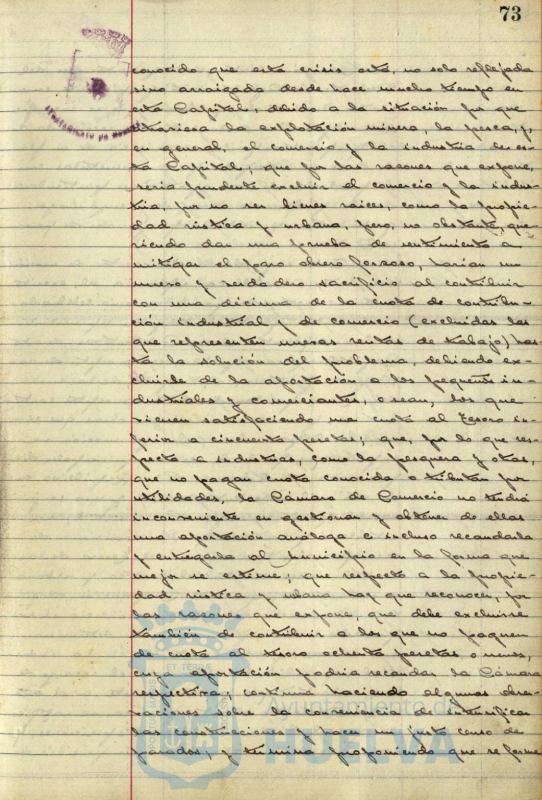 73
conocido que esta crisis está, no solo reflejada
sino arraigada desde hace mucho tiempo en
esta Capital, debido a la situación por que
atraviesa la explotación minera, la pesca, y,
en general, el comercio y la industria de es-
ta Capital; que por las razones que expone,
seria prudente excluir el comercio y la indus-
tria, por no ser bienes raices, como la propie-
dad rústica y urbana, pero, no obstante, que-
riendo dar una prueba de sentimiento a
mitigar el paro obrero forzoso, harian un
nuevo y verdadero sacrificio al contribuir
con una décima de la cuota de contribu-
ción industrial y de comercio (excluidas las
que representen nuevas rentas de trabajo) has-
ta la solución del problema, debiendo ex-
cluirse de la aportación a los pequeños in-
dustriales y comerciantes, o sean, los que
vienen satisfaciendo una cuota al Tesoro in-
ferior a cincuenta pesetas; que, por lo que res-
pecta a industrias, como la pesquera y otras,
que no pagan cuota conocida o tributan por
utilidades, la Cámara de Comercio no tendrá
inconveniente en gestionar y obtener de ellas
una aportación análoga e incluso recaudarla
y entregarla al Municipio en la forma que
mejor se estime; que respecto a la propie-
dad rústica y urbana hay que reconocer, por
las razones que expone, que debe excluirse
también de contribuir a los que no paguen
de cuota al tesoro ochenta pesetas o menos,
cuya aportación podria recaudar la Cámara
respectiva; continua haciendo algunas obser-
vaciones sobre la conveniencia de intensificar
las construcciones y hacer un justo censo de
parados, y termina proponiendo que se forme
AYUNTAMIENTO DE HUELVA
Ayuntamiento de
HUELVA